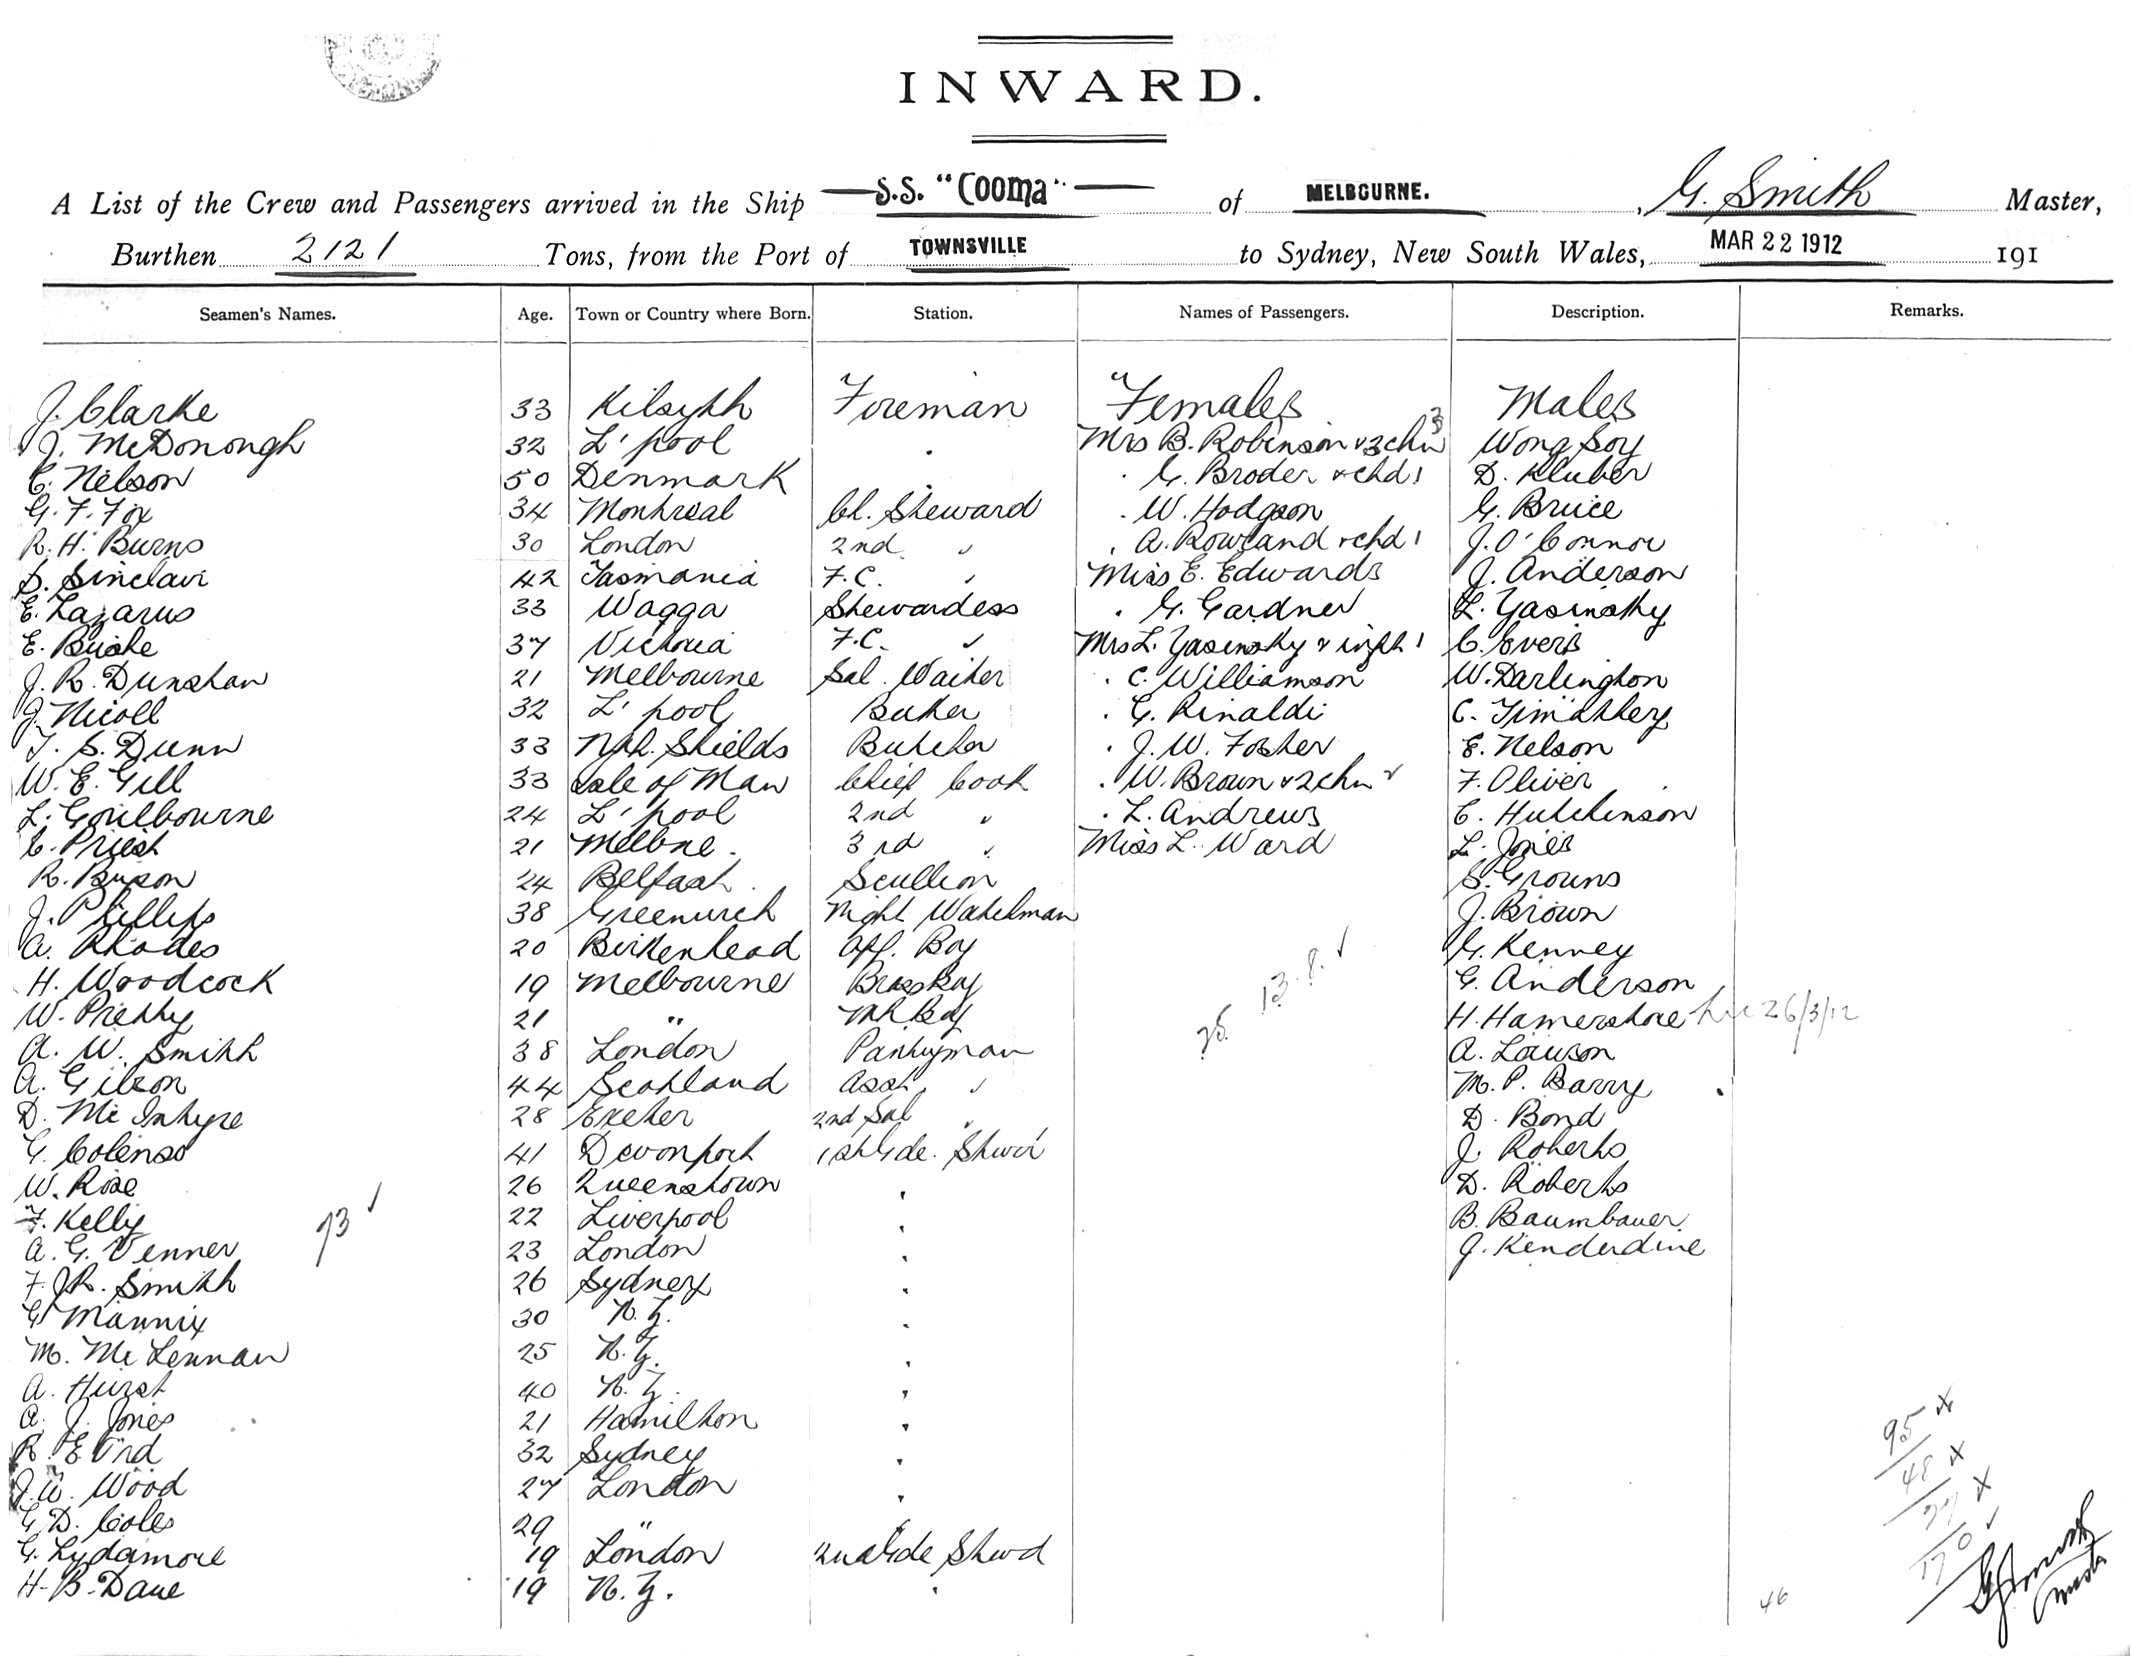 INWARD.
A List of the Crew and Passengers arrived in the Ship S.S. "Cooma" of MELBOURNE. , G. Smith Master,
Burthen 2121 Tons, from the Port of TOWNSVILLE to Sydney, New South Wales, MAR 22 1912 191
Seamen's Names. Age. Town or Country where Born. Station. Names of Passengers. Description. Remarks.
J. Clarke 33 Kilsyth Foreman Females Males
J. McDonough 32 L'pool " Mrs B. Robinson & 3 chn 3 Wong Soy
C. Nelson 50 Denmark " " G. Broder & chd 1 D. Kluber
G. F. Fox 34 Montreal Ch. Steward " W. Hodgson G. Bruce
R. H. Burns 30 London 2nd " " A. Rowland & chd 1 J. O'Connor
S. Sinclair 42 Tasmania F.C. " Miss E. Edwards J. Anderson
E. Lazarus 33 Wagga Stewardess " G. Gardner L. Yasinsky
E. Burke 37 Victoria F.C. " Mrs L. Yasinsky & inft 1 C. Evers
J. R. Dunstan 21 Melbourne Sal. Waiter " C. Williamson W. Darlington
J. Nicoll 32 L'pool Baker " G. Rinaldi C. Timothey
T. S. Dunn 33 Nth. Shields Butcher " J. W. Foster E. Nelson
W. E. Gill 33 Isle of Man Chief Cook " W. Brown & 2 chn 2 F. Oliver
L. Goulbourne 24 L'pool 2nd " " L. Andrews C. Hutchinson
C. Priest 21 Melbne. 3rd " Miss L. Ward L. Jones
R. 24 Belfast. Scullion S. Grouns
J. Phillips 38 Greenwich Night Watchman J. Brown
A. Rhodes 20 Birkenhead Off. Boy G. Kenney
H. Woodcock 19 Melbourne Brass Boy G. Anderson
W. Pretty 21 " Boy H. Hamershoe 26/3/12
A. W. Smith 38 London Pantryman A. Lawson
A. Gilson 44 Scotland Asst. " M. P. Barry
D. McIntyre 28 Exeter 2nd Sal " D. Bond
G. Colenso 41 Devonport 1st Gde. Stwd J. Roberts
W. Rose 26 Queenstown " D. Roberts
F. Kelly 22 Liverpool " B. Baumbauer
73
A. G. Venner 23 London " J. Kenderdine
F. J. R. Smith 26 Sydney "
G. Mannix 30 N.Z. "
M. McLennan 25 N.Z. "
A. Hurst 40 N.Z. "
A. J. Jones 21 Hamilton "
R. E. Ord 32 Sydney "
J. W. Wood 27 London "
G. D. Coles 29 " "
G. Lydamore 19 London 2nd Gde Stwd
H. B. Dane 19 N.Z. "
95
48
27
170
46